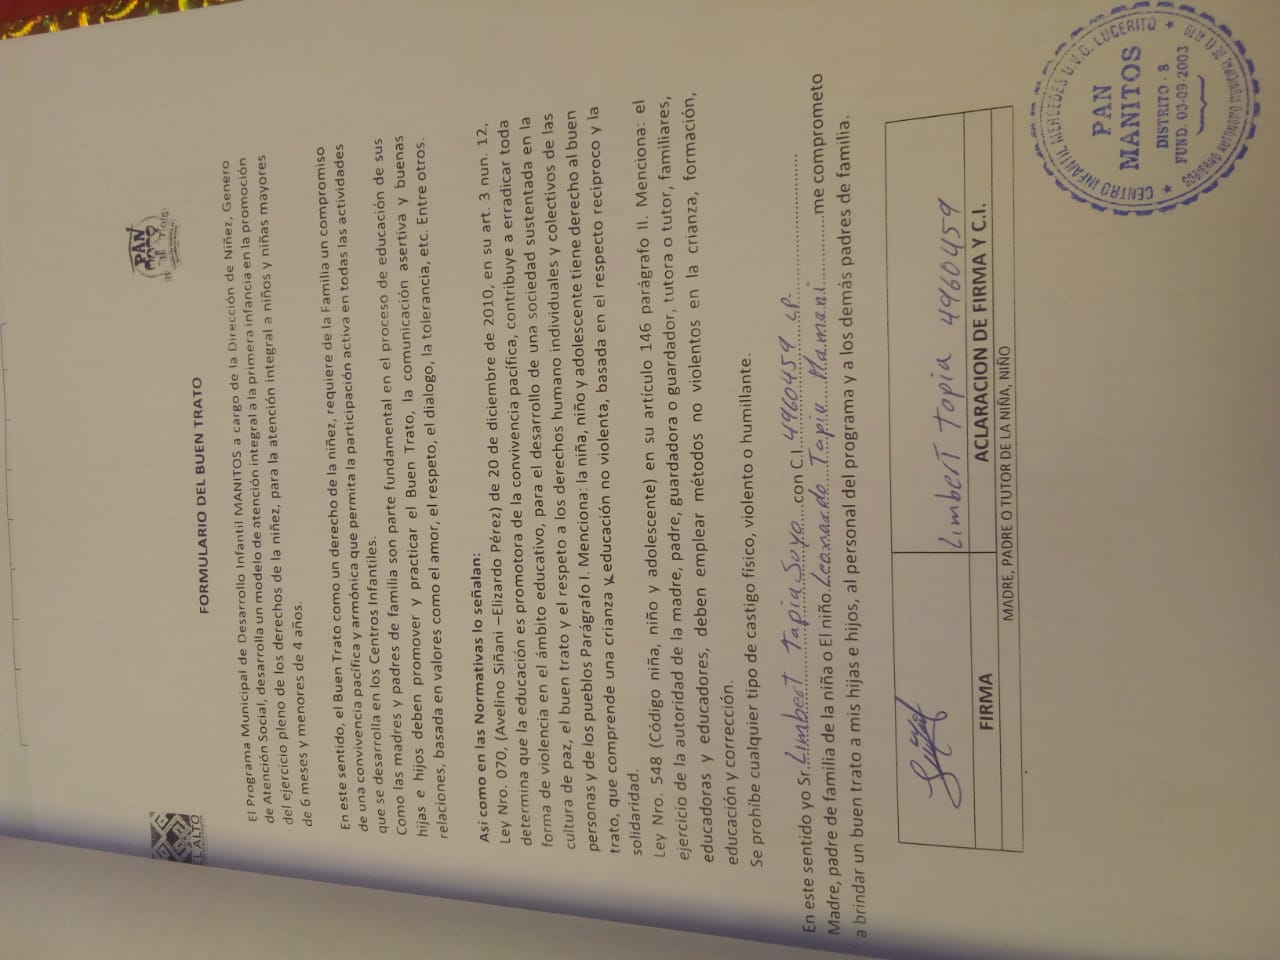 EL ALTO
PAN
FORMULARIO DEL BUEN TRATO
El Programa Municipal de Desarrollo Infantil MANITOS a cargo de la Dirección de Niñez, Genero
de Atención Social, desarrolla un modelo de atención integral a la primera infancia en la promoción
del ejercicio pleno de los derechos de la niñez, para la atención integral a niños y niñas mayores
de 6 meses y menores de 4 años.
En este sentido, el Buen Trato como un derecho de la niñez, requiere de la Familia un compromiso
de una convivencia pacífica y armónica que permita la participación activa en todas las actividades
que se desarrolla en los Centros Infantiles.
Como las madres y padres de familia son parte fundamental en el proceso de educación de sus
hijas e hijos deben promover y practicar el Buen Trato, la comunicación asertiva y buenas
relaciones, basada en valores como el amor, el respeto, el dialogo, la tolerancia, etc. Entre otros.
Así como en las Normativas lo señalan:
Ley Nro. 070, (Avelino Siñani –Elizardo Pérez) de 20 de diciembre de 2010, en su art. 3 nun. 12,
determina que la educación es promotora de la convivencia pacífica, contribuye a erradicar toda
forma de violencia en el ámbito educativo, para el desarrollo de una sociedad sustentada en la
cultura de paz, el buen trato y el respeto a los derechos humano individuales y colectivos de las
personas y de los pueblos Parágrafo I. Menciona: la niña, niño y adolescente tiene derecho al buen
trato, que comprende una crianza y educación no violenta, basada en el respecto reciproco y la
solidaridad.
Ley Nro. 548 (Código niña, niño y adolescente) en su artículo 146 parágrafo II. Menciona: el
ejercicio de la autoridad de la madre, padre, guardadora o guardador, tutora o tutor, familiares,
educadoras y educadores, deben emplear métodos no violentos en la crianza, formación,
educación y corrección.
Se prohibe cualquier tipo de castigo físico, violento o humillante.
En este sentido yo Sr. Limbert Tapia Suyo con C.I. 4960459 L.P.
Madre, padre de familia de la niña o El niño Leonardo Tapia Mamani me comprometo
a brindar un buen trato a mis hijas e hijos, al personal del programa y a los demás padres de familia.
Limbert Tapia 4960459
FIRMA
ACLARACION DE FIRMA Y C.I.
MADRE, PADRE O TUTOR DE LA NIÑA, NIÑO
CENTRO INFANTIL MERCEDES U.V.G. LUCERITO
PAN
MANITOS
DISTRITO - 8
FUND. 03-09-2003
GOBIERNO AUTONOMO MUNICIPAL DE EL ALTO